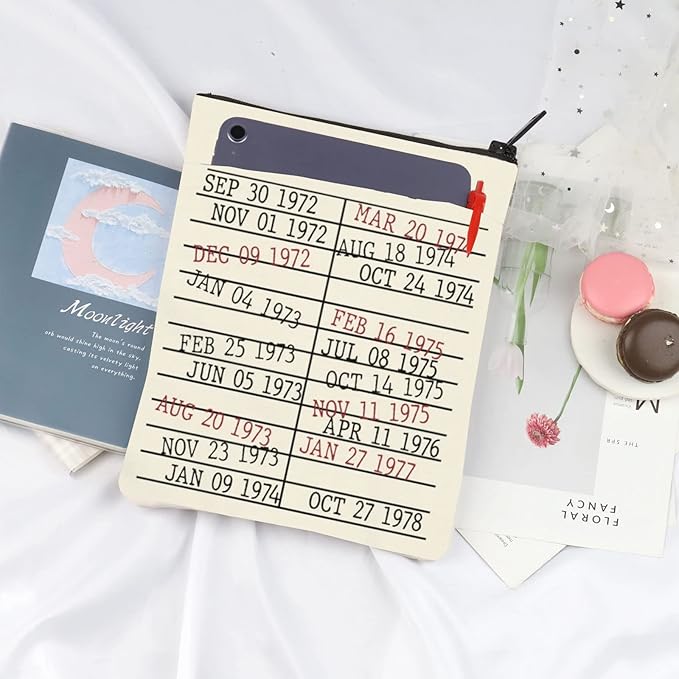 SEP 30 1972
NOV 01 1972
DEC 09 1972
JAN 04 1973
FEB 25 1973
JUN 05 1973
AUG 20 1973
NOV 23 1973
JAN 09 1974
MAR 20 1974
AUG 18 1974
OCT 24 1974
FEB 16 1975
JUL 08 1975
OCT 14 1975
NOV 11 1975
APR 11 1976
JAN 27 1977
OCT 27 1978
Moonlight
The moon's round
orb would shine high in the sky,
casting its velvety light
on everything.
M
THE SPR
FLORAL
FANCY